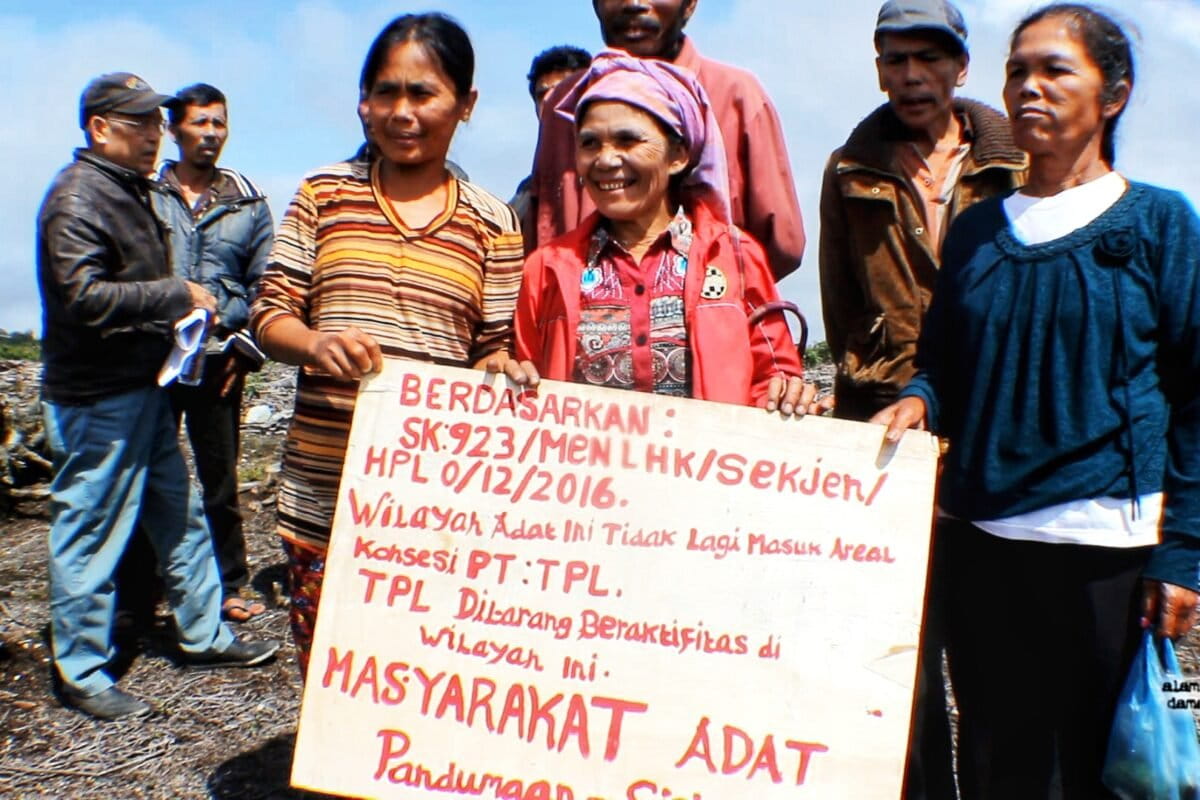 BERDASARKAN :
SK:923/MENLHK/SEKJEN/
HPL 0/12/2016.
WILAYAH ADAT INI TIDAK LAGI MASUK AREAL
KONSESI PT:TPL.
TPL DILARANG BERAKTIFITAS di
WILAYAH INI.
MASYARAKAT ADAT
Pandumaan -
alam
dama